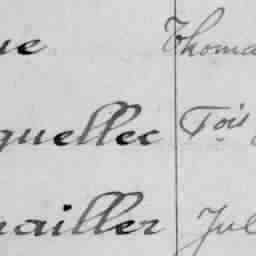 ue Thoma
quellec Fois
nailler Jul